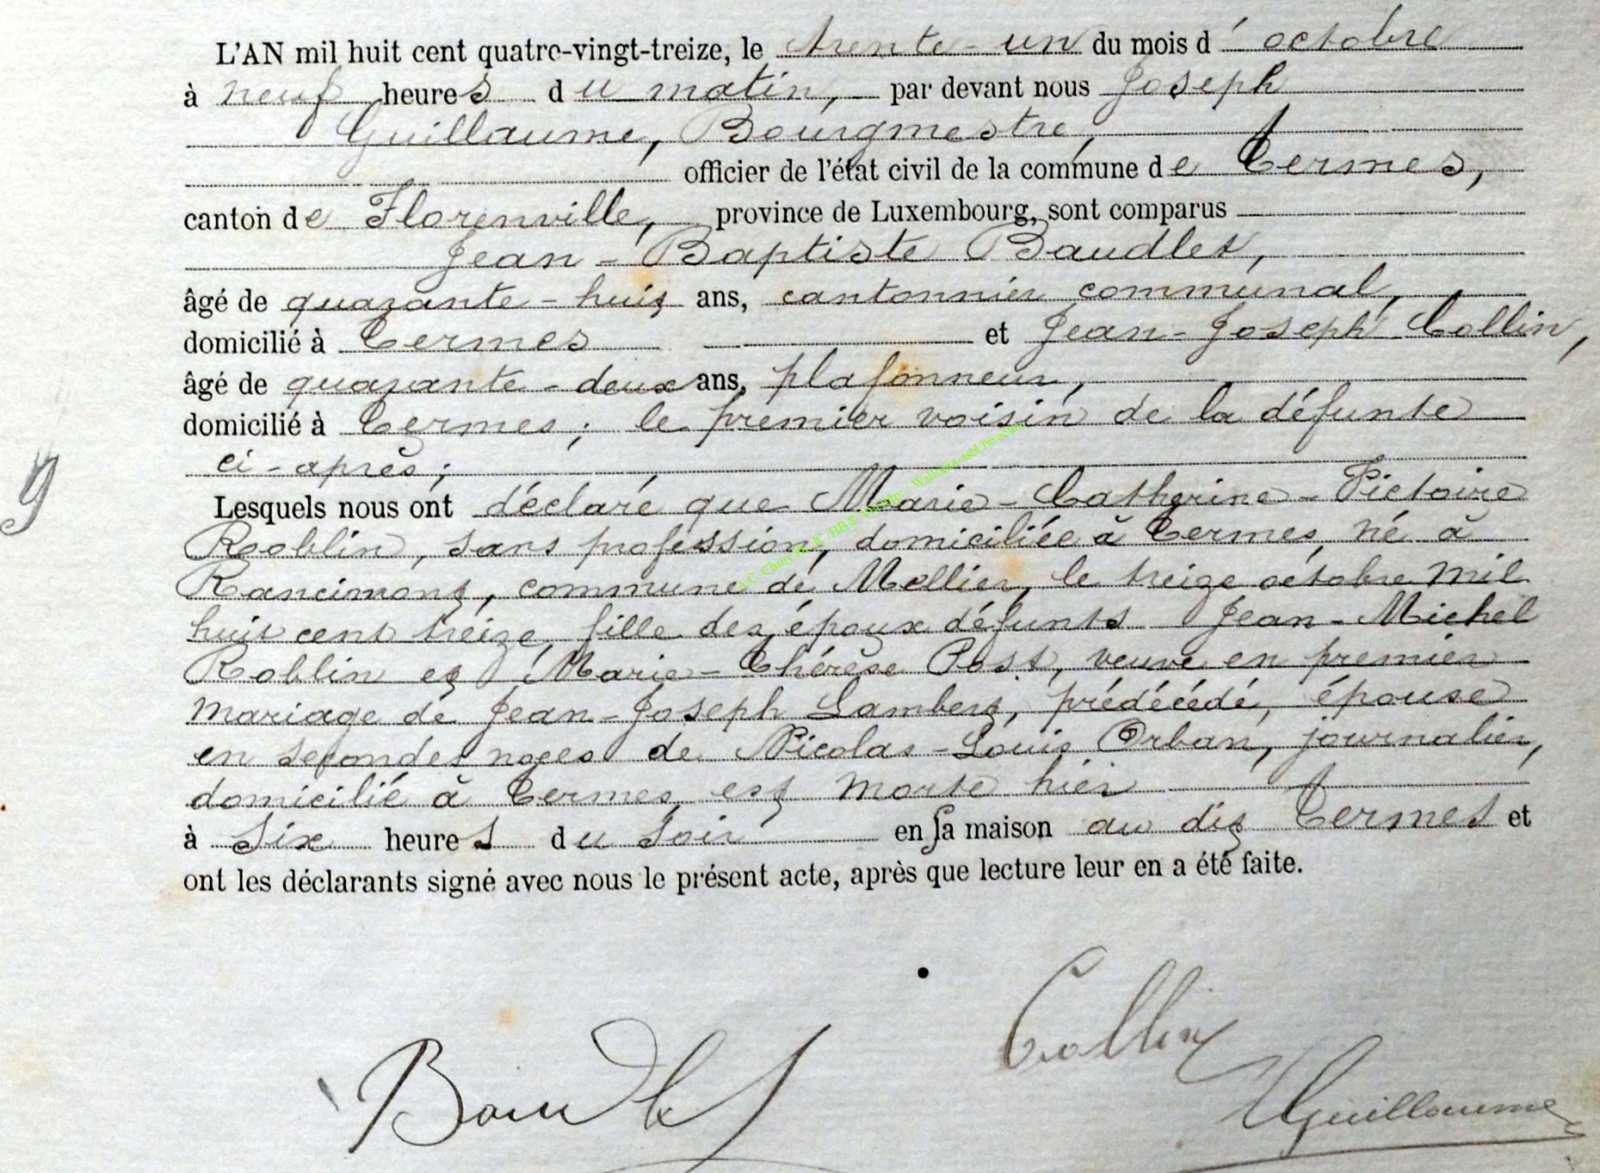 L'AN mil huit cent quatre-vingt-treize, le trente-un du mois d'octobre
à neuf heures du matin, par devant nous Joseph
Guillaume, Bourgmestre,
officier de l'état civil de la commune de Termes,
canton de Florenville, province de Luxembourg, sont comparus
Jean-Baptiste Baudlet,
âgé de quarante-huit ans, cantonnier communal,
domicilié à Termes et Jean-Joseph Collin,
âgé de quarante-deux ans, plafonneur,
domicilié à Termes; le premier voisin de la défunte
ci-après;
9
Lesquels nous ont déclaré que Marie-Catherine-Victoire
Roblin, sans profession, domiciliée à Termes, né à
Rancimont, commune de Mellier, le treize octobre mil
huit cent treize, fille des époux défunts Jean-Michel
Roblin et Marie-Thérèse Post, veuve en premier
mariage de Jean-Joseph Lambert, prédécédé, épouse
en secondes noces de Nicolas-Louis Orban, journalier,
domicilié à Termes, est morte hier
à six heures du soir en sa maison au dit Termes et
ont les déclarants signé avec nous le présent acte, après que lecture leur en a été faite.
Collin
Baudlet
Guillaume